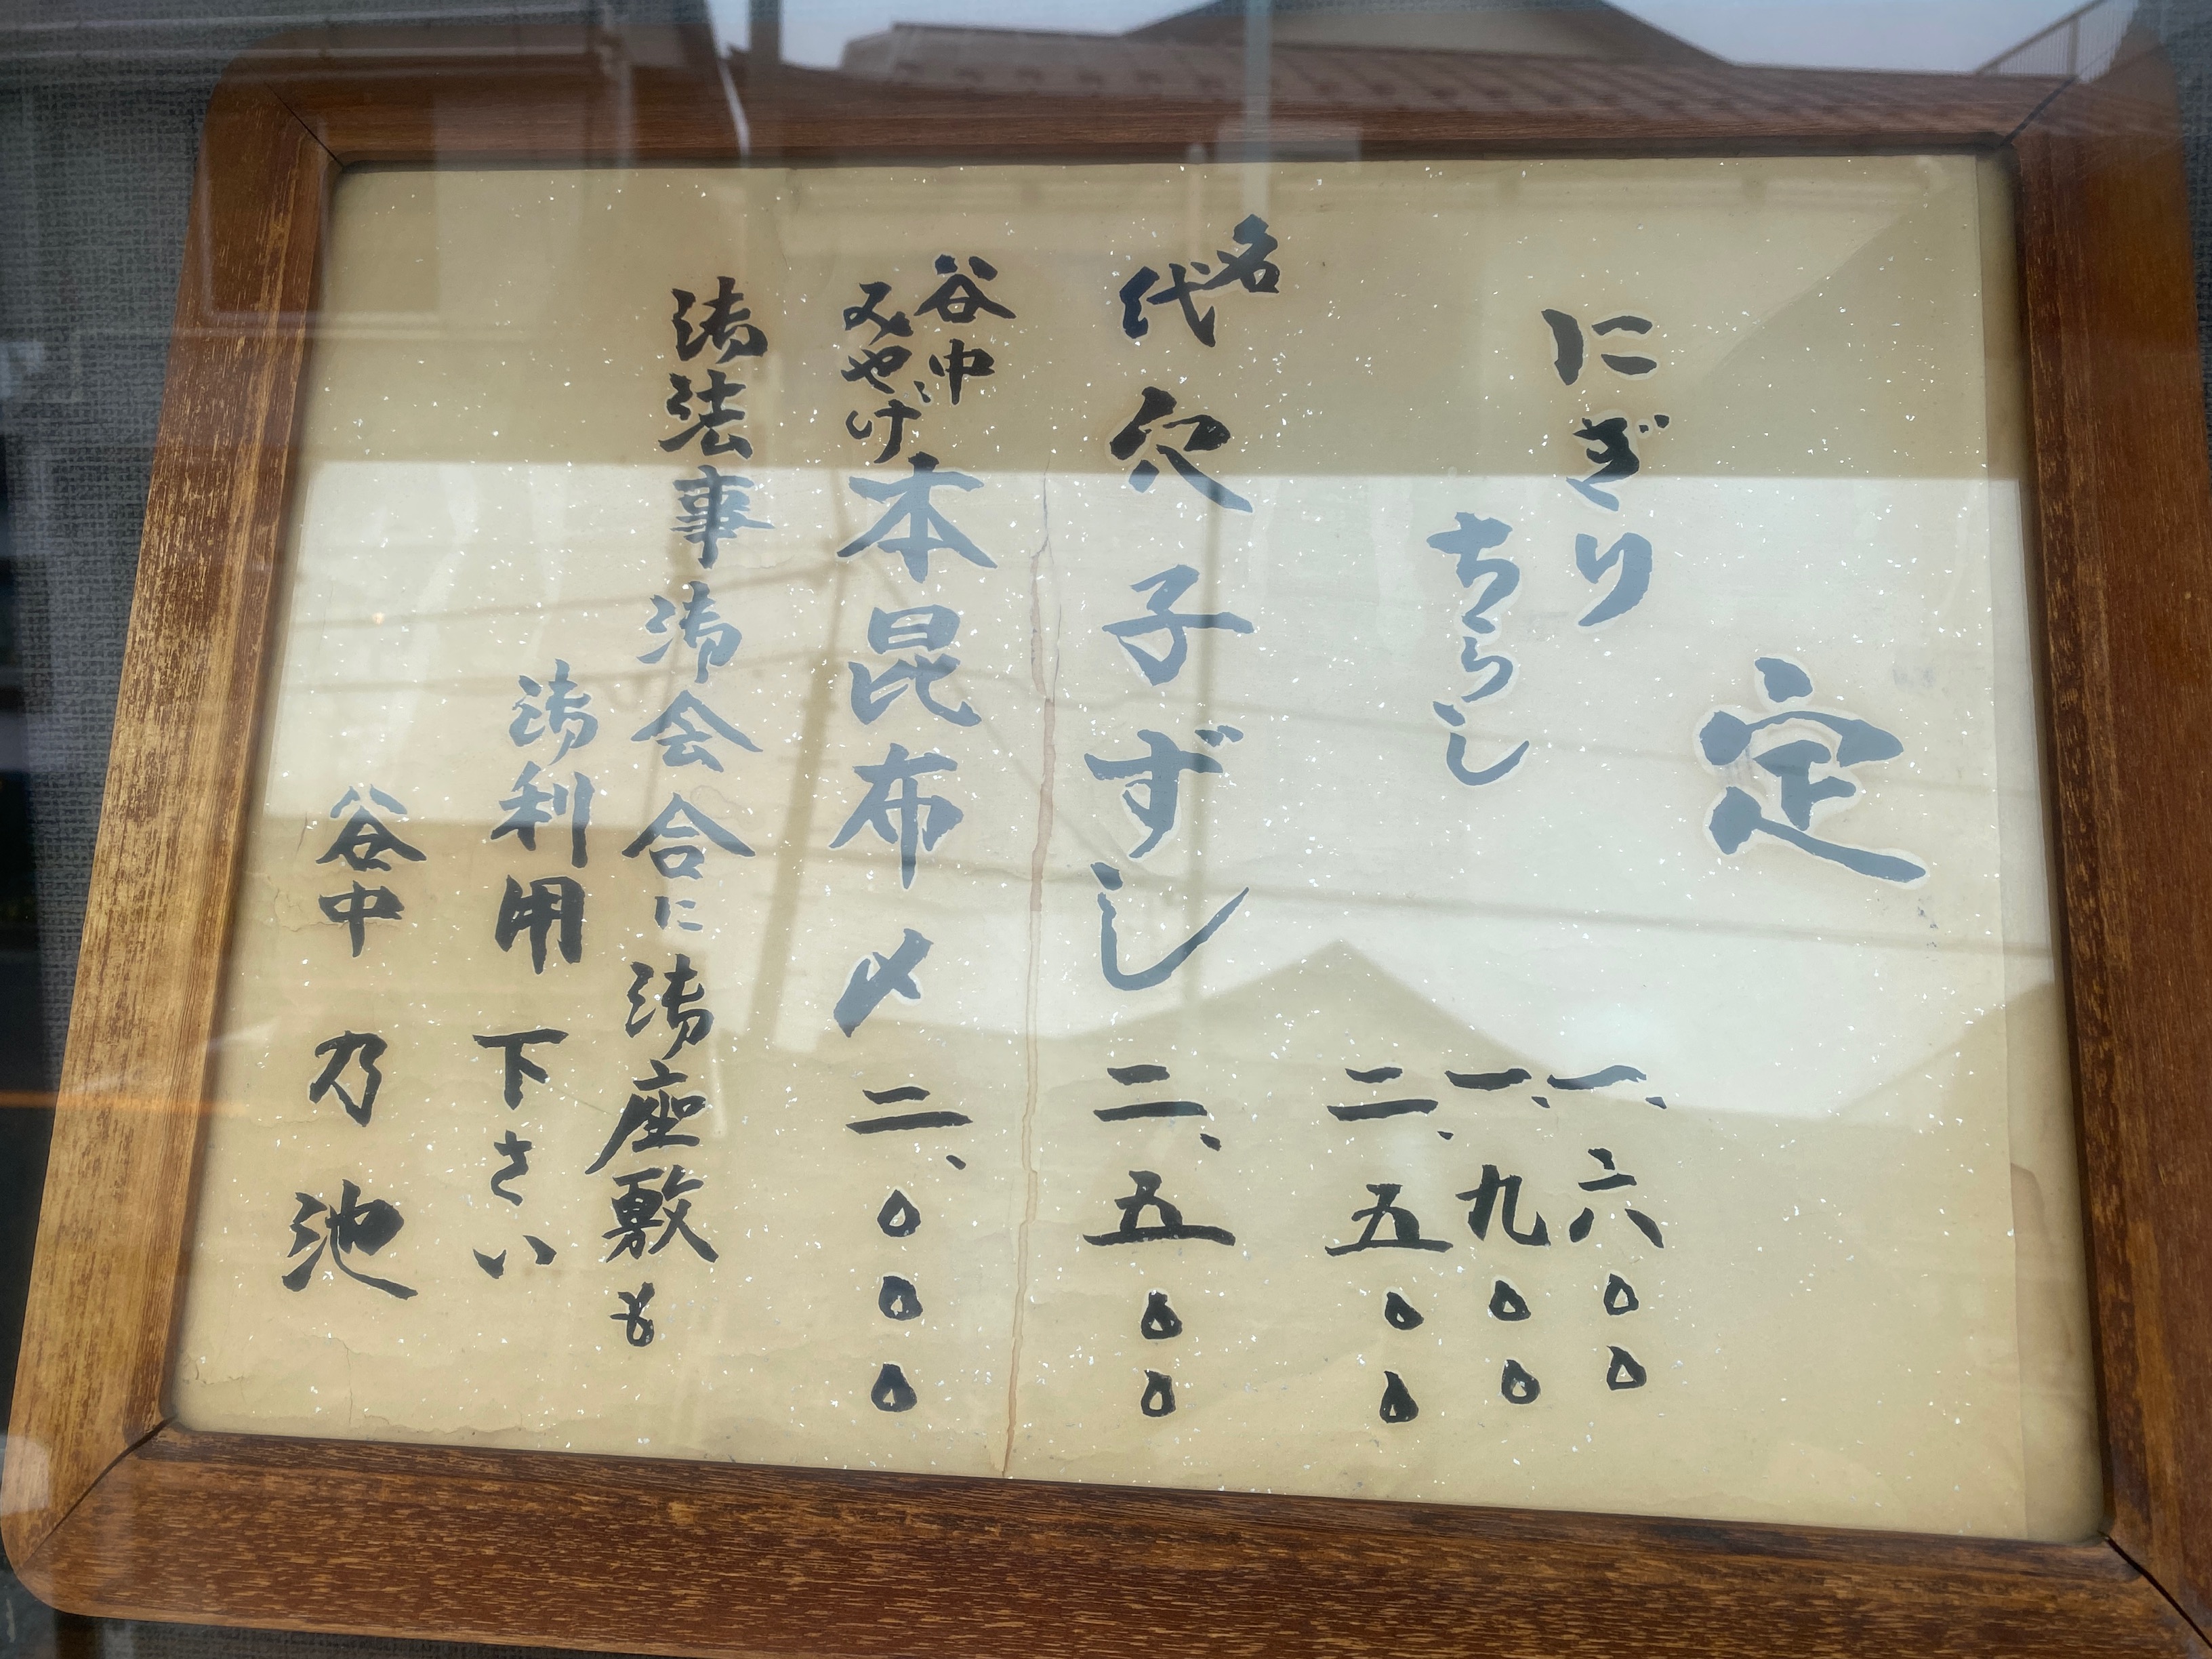 定
にぎり
ちらし
一、六〇〇
一、九〇〇
二、五〇〇
名代 穴子ずし 二、五〇〇
谷中みやげ 本昆布〆 二、〇〇〇
御法事御会合に御座敷も
御利用下さい
谷中 乃池